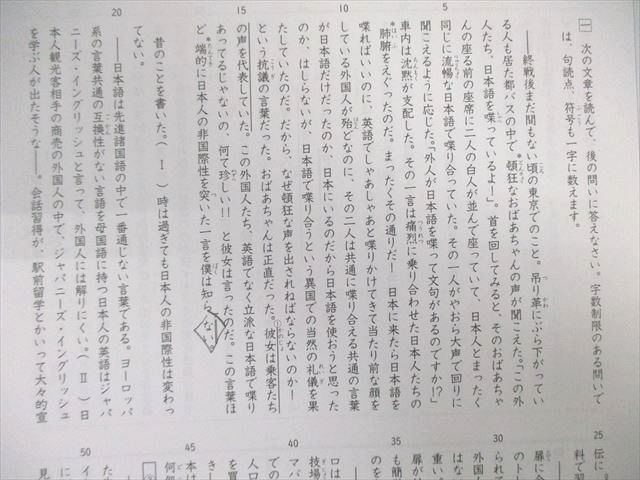 一 次の文章を読んで、後の問いに答えなさい。字数制限のある問いで
は、句読点、符号も一字に数えます。
――終戦後まだ間もない頃の東京でのこと。吊り革にぶら下がってい
る人も居た都バスの中で、頓狂なおばあちゃんの声が聞こえた。「この外
人たち、日本語を喋っているよー」。首を回してみると、そのおばあちゃ
んの座る前の座席に二人の白人が並んで座っていて、日本人とまったく
同じに流暢な日本語で喋り合っていた。その一人がやおら大声で回りに
聞こえるように応じた。「外人が日本語を喋って文句があるのですか!?」
車内は沈黙が支配した。その一言は痛烈に乗り合わせた日本人たちの
肺腑をえぐったのだ。まったくその通りだー 日本に来たら日本語を
喋ればいいのに、英語でしゃあしゃあと喋りかけてきて当たり前な顔を
している外国人が殆どなのに、その二人は共通に喋り合える共通の言葉
が日本語だけだったのか、日本にいるのだから日本語を使おうと思った
のか、はしらないが、日本語で喋り合うという異国での当然の礼儀を果
たしていたのだ。だから、なぜ頓狂な声を出されねばならないのかー
という抗議の言葉だった。おばあちゃんは正直だった。彼女は乗客たち
の声を代表していた。この外国人たち、英語でなく立派な日本語で喋り
あってるじゃないの、何て珍しい!! と彼女は言ったのだ。この言葉ほ
ど、端的に日本人の非国際性を突いた一言を僕は知らない。
昔のことを書いた。( Ⅰ ) 時は過ぎても日本人の非国際性は変わっ
てない。
――日本語は先進諸国語の中で一番通じない言葉である。ヨーロッパ
系の言葉共通の互換性がない言語を母国語に持つ日本人の英語はジャパ
ニーズ・イングリッシュと言って、外国人には解りにくい。( Ⅱ ) 日
本人観光客相手の商売の外国人の中で、ジャパニーズ・イングリッシュ
を学ぶ人が出たそうな――。会話習得が、駅前留学とかいって大々的宣
5
10
15
20
25
伝に
料で
30
35
40
45
50